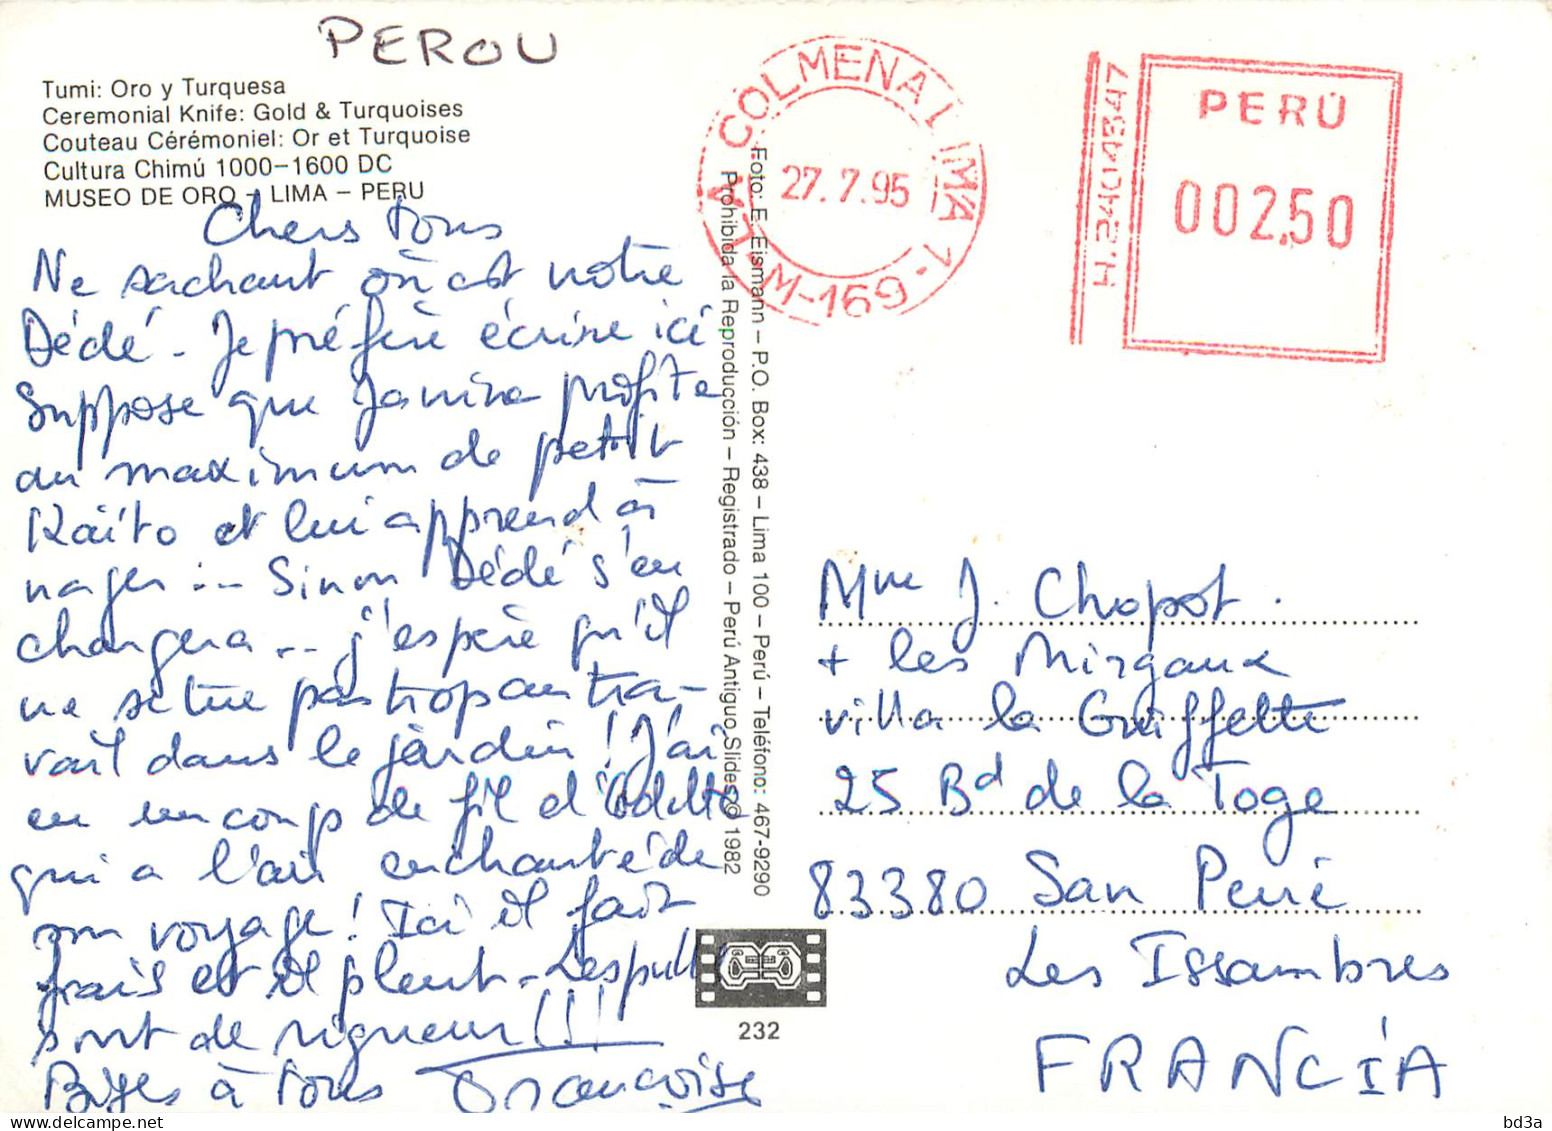 PEROU
Tumi: Oro y Turquesa
Ceremonial Knife: Gold & Turquoises
Couteau Cérémoniel: Or et Turquoise
Cultura Chimú 1000–1600 DC
MUSEO DE ORO – LIMA – PERU
Chers tous
Ne sachant où est notre
Dédé - Je préfère écrire ici
Suppose que Janine profite
au maximum de petit
Kaïto et lui apprend à
nager ... Sinon Dédé s'en
chargera ... j'espère qu'il
ne se tue pas trop au tra-
vail dans le jardin ! J'ai
eu un coup de fil d'Odette
qui a l'air enchantée de
son voyage ! Ici il fait
frais et il pleut - Les pulls
sont de rigueur !!!
Bises à tous Françoise
Foto: E. Eismann – P.O. Box: 438 – Lima 100 – Perú – Teléfono: 467-9290
Prohibida la Reproducción – Registrado – Perú Antiguo Slides © 1982
232
COLMENA 1 LIMA 1
27.7.95
M-169
PERÚ
002.50
Mme J. Chopot.
+ les Mirgaux
villa la Griffette
25 Bd de la Toge
83380 San Peïré
Les Issambres
FRANCIA
bd3a